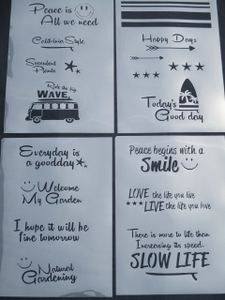 Peace is
All we need
California Style
Succulent
Plants
Ride the big
WAVE.
Happy Days
Today's
Good day
Everyday is
a goodday
Welcome
My Garden
I hope it will be
fine tomorrow
Natural
Gardening
Peace begins with a
Smile
LOVE the life you live
LIVE the life you love
There is more to life than
Increasing its speed.
SLOW LIFE